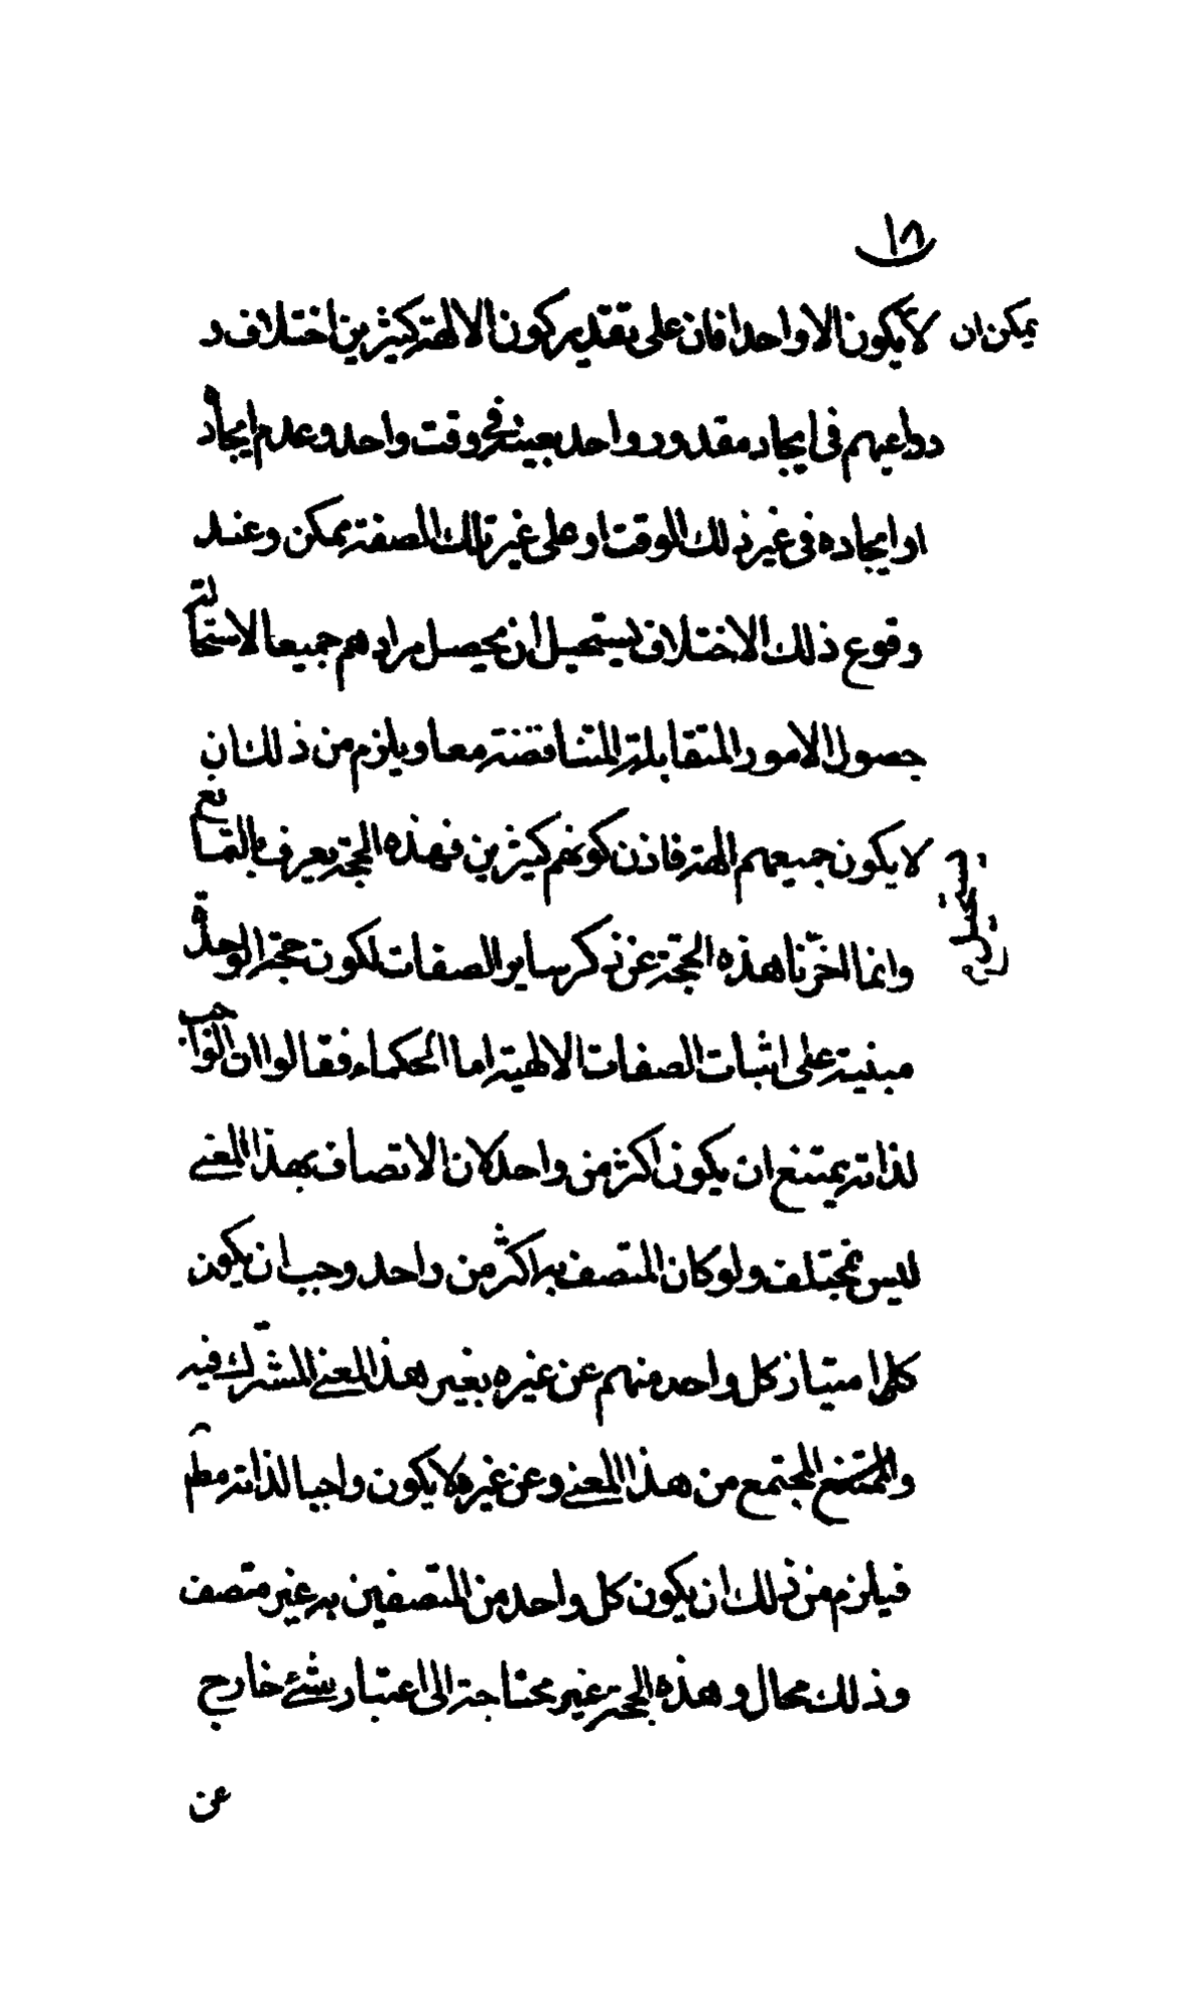 ١٨
يمكن ان
لا يكون الا واحدا فان على تقدير كون الالهة كثيرين اختلاف د
دواعيهم فى ايجاد مقدور واحد بعينه فى وقت واحد وعدم ايجاده
او ايجاده فى غير ذلك الوقت او على غير تلك الصفة ممكن وعند
وقوع ذلك الاختلاف يستحيل ان يحصل مرادهم جميعا لاستحالة
حصول الامور المتقابلة المتناقضة معا ويلزم من ذلك ان
لا يكون جميعهم الهة فاذن كونهم كثيرين فهذه الحجة يعرف بالتمانع
وانما اخرّنا هذه الحجّة عن ذكر ساير الصفات لكون حجة الوحدة
مبنية على اثبات الصفات الالهية اما الحكماء فقالوا ان الواجب
لذاته يمتنع ان يكون اكثر من واحد لان الاتصاف بهذا المعنى
ليس بمختلف ولو كان المتصف به اكثر من واحد وجب ان يكون
كلما امتياز كل واحد منهم عن غيره بغير هذا المعنى المشترك فيه
والممتنع المجتمع من هذا المعنى وعن غيره لا يكون واجبا لذاته مطم
فيلزم من ذلك ان يكون كل واحد من المتصفين به غير متصف
وذلك محال وهذه الحجة غير محتاجة الى اعتبار شئ خارج
عن